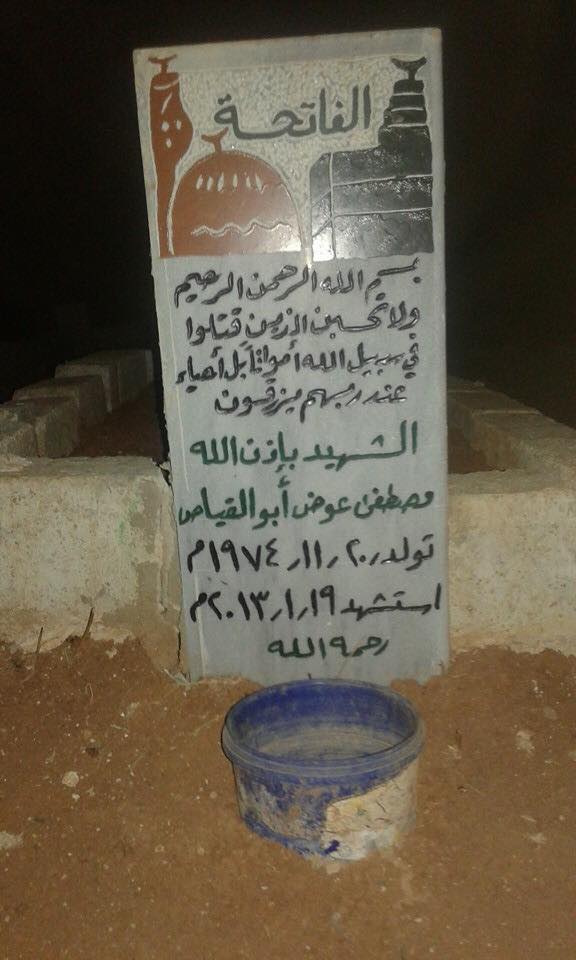 الفاتحة
بسم الله الرحمن الرحيم
ولا تحسبن الذين قتلوا
في سبيل الله أمواتا بل أحياء
عند ربهم يرزقون
الشهيد بإذن الله
مصطفى عوض أبو القياص
تولد ٢٠ر١١ر١٩٧٤م
استشهد ١٩ر١ر٢٠١٣م
رحمه الله